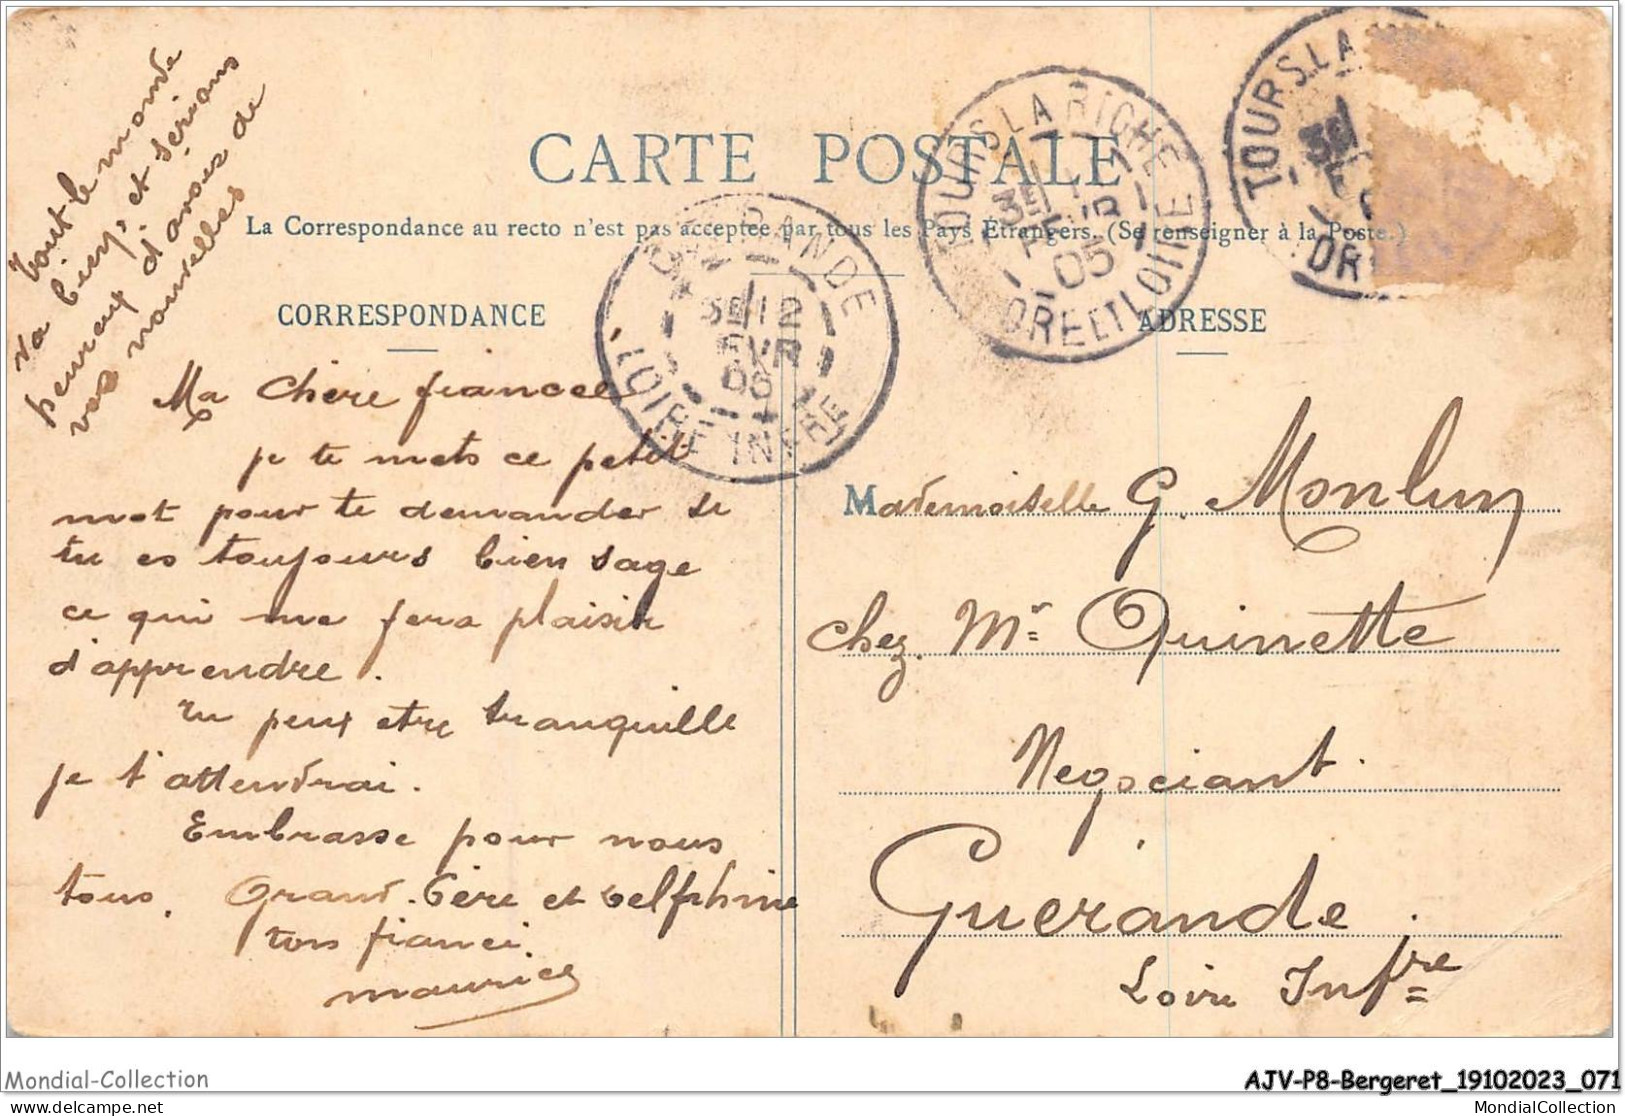 Tout le monde
va bien, et serions
heureux d'avoir de
vos nouvelles
CARTE POSTALE
La Correspondance au recto n'est pas acceptée par tous les Pays Étrangers. (Se renseigner à la Poste.)
CORRESPONDANCE
ADRESSE
TOURS.LA RICHE
3E
11
AVR
05
INDRE ET LOIRE
TOURS.LA
3E
GUERANDE
12
AVR
05
LOIRE INFRE
Ma chère fiancée
je te mets ce petit
mot pour te demander si
tu es toujours bien sage
ce qui me fera plaisir
d'apprendre.
Tu peux etre tranquille
je t'attendrai.
Embrasse pour nous
tous. Grand-Père et Delphine
ton fiancé
Maurice
Mademoiselle G. Monlun
chez Mr Quinette
Negociant.
Guérande.
Loire Infre
Mondial-Collection
AJV-P8-Bergeret_19102023_071
MondialCollection